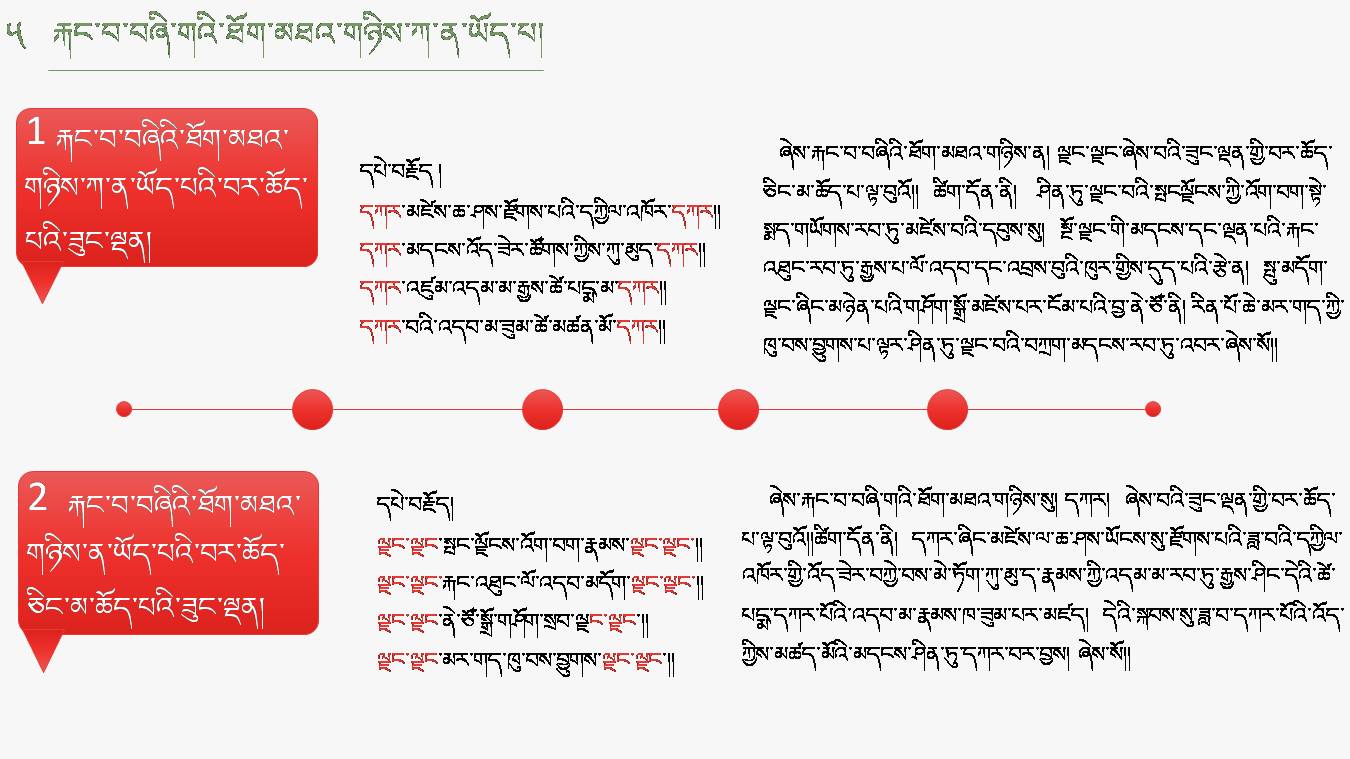 ༥ རྐང་བ་བཞི་གའི་ཐོག་མཐའ་གཉིས་ཀ་ན་ཡོད་པ།
1 རྐང་བ་བཞིའི་ཐོག་མཐའ་
གཉིས་ཀ་ན་ཡོད་པའི་བར་ཆོད་
པའི་ཟུང་ལྡན།
དཔེ་བརྗོད།
དཀར་མཛེས་ཆ་ཤས་རྫོགས་པའི་དཀྱིལ་འཁོར་དཀར།།
དཀར་མདངས་འོད་ཟེར་ཚོགས་ཀྱིས་ཀུ་མུད་དཀར།།
དཀར་འཛུམ་འདམ་མ་རྒྱས་ཚེ་པདྨ་མ་དཀར།།
དཀར་བའི་འདབ་མ་ཟུམ་ཚེ་མཚན་མོ་དཀར།།
ཞེས་རྐང་བ་བཞིའི་ཐོག་མཐའ་གཉིས་ན། ལྗང་ལྗང་ཞེས་བའི་ཟུང་ལྡན་གྱི་བར་ཆོད་
ཅིང་མ་ཆོད་པ་ལྟ་བུའོ།། ཚིག་དོན་ནི། ཤིན་ཏུ་ལྗང་བའི་སྤངལྗོངས་ཀྱི་འོག་བག་སྟེ་
སྨད་གཡོགས་རབ་ཏུ་མཛེས་བའི་དབུས་སུ། སྔོ་ལྗང་གི་མདངས་དང་ལྡན་པའི་རྐང་
འཐུང་རབ་ཏུ་རྒྱས་པ་ལོ་འདབ་དང་འབྲས་བུའི་ཁུར་གྱིས་དུད་པའི་རྩེ་ན། སྤུ་མདོག་
ལྗང་ཞིང་མཉེན་པའི་གཤོག་སྒྲོ་མཛེས་པར་ངོམ་པའི་བྱ་ནེ་ཙོ་ནི། རིན་པོ་ཆེ་མར་གད་ཀྱི་
ཁུ་བས་བྱུགས་པ་ལྟར་ཤིན་ཏུ་ལྗང་བའི་བཀྲག་མདངས་རབ་ཏུ་འབར་ཞེས་སོ།།
2 རྐང་བ་བཞིའི་ཐོག་མཐའ་
གཉིས་ན་ཡོད་པའི་བར་ཆོད་
ཅིང་མ་ཆོད་པའི་ཟུང་ལྡན།
དཔེ་བརྗོད།
ལྗང་ལྗང་སྤང་ལྗོངས་འོག་བག་རྣམས་ལྗང་ལྗང་།།
ལྗང་ལྗང་རྐང་འཐུང་ལོ་འདབ་མདོག་ལྗང་ལྗང་།།
ལྗང་ལྗང་ནེ་ཙོ་སྒྲོ་གཤོག་སྲབ་ལྗང་ལྗང་།།
ལྗང་ལྗང་མར་གད་ཁུ་བས་བྱུགས་ལྗང་ལྗང་།།
ཞེས་རྐང་བ་བཞི་གའི་ཐོག་མཐའ་གཉིས་སུ། དཀར། ཞེས་བའི་ཟུང་ལྡན་གྱི་བར་ཆོད་
པ་ལྟ་བུའོ།།ཚིག་དོན་ནི། དཀར་ཞིང་མཛེས་ལ་ཆ་ཤས་ཡོངས་སུ་རྫོགས་པའི་ཟླ་བའི་དཀྱིལ་
འཁོར་གྱི་འོད་ཟེར་བཀྱེ་བས་མེ་ཏོག་ཀུ་མུ་ད་རྣམས་ཀྱི་འདམ་མ་རབ་ཏུ་རྒྱས་ཤིང་དེའི་ཚེ་
པདྨ་དཀར་པོའི་འདབ་མ་རྣམས་ཁ་ཟུམ་པར་མཛད། དེའི་སྐབས་སུ་ཟླ་བ་དཀར་པོའི་འོད་
ཀྱིས་མཚད་མོའི་མདངས་ཤིན་ཏུ་དཀར་བར་བྱས། ཞེས་སོ།།